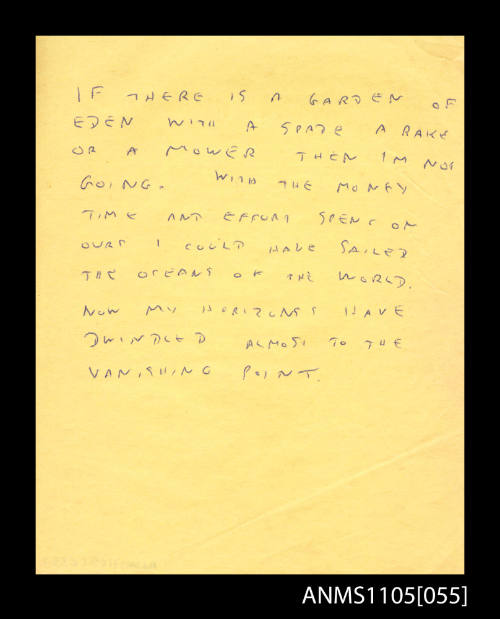 IF THERE IS A GARDEN OF
EDEN WITH A SPADE A RAKE
OR A MOWER THEN I'M NOT
GOING. WITH THE MONEY
TIME AND EFFORT SPENT ON
OURS I COULD HAVE SAILED
THE OCEANS OF THE WORLD.
NOW MY HORIZONS HAVE
DWINDLED ALMOST TO THE
VANISHING POINT.
ANMS1105[055]